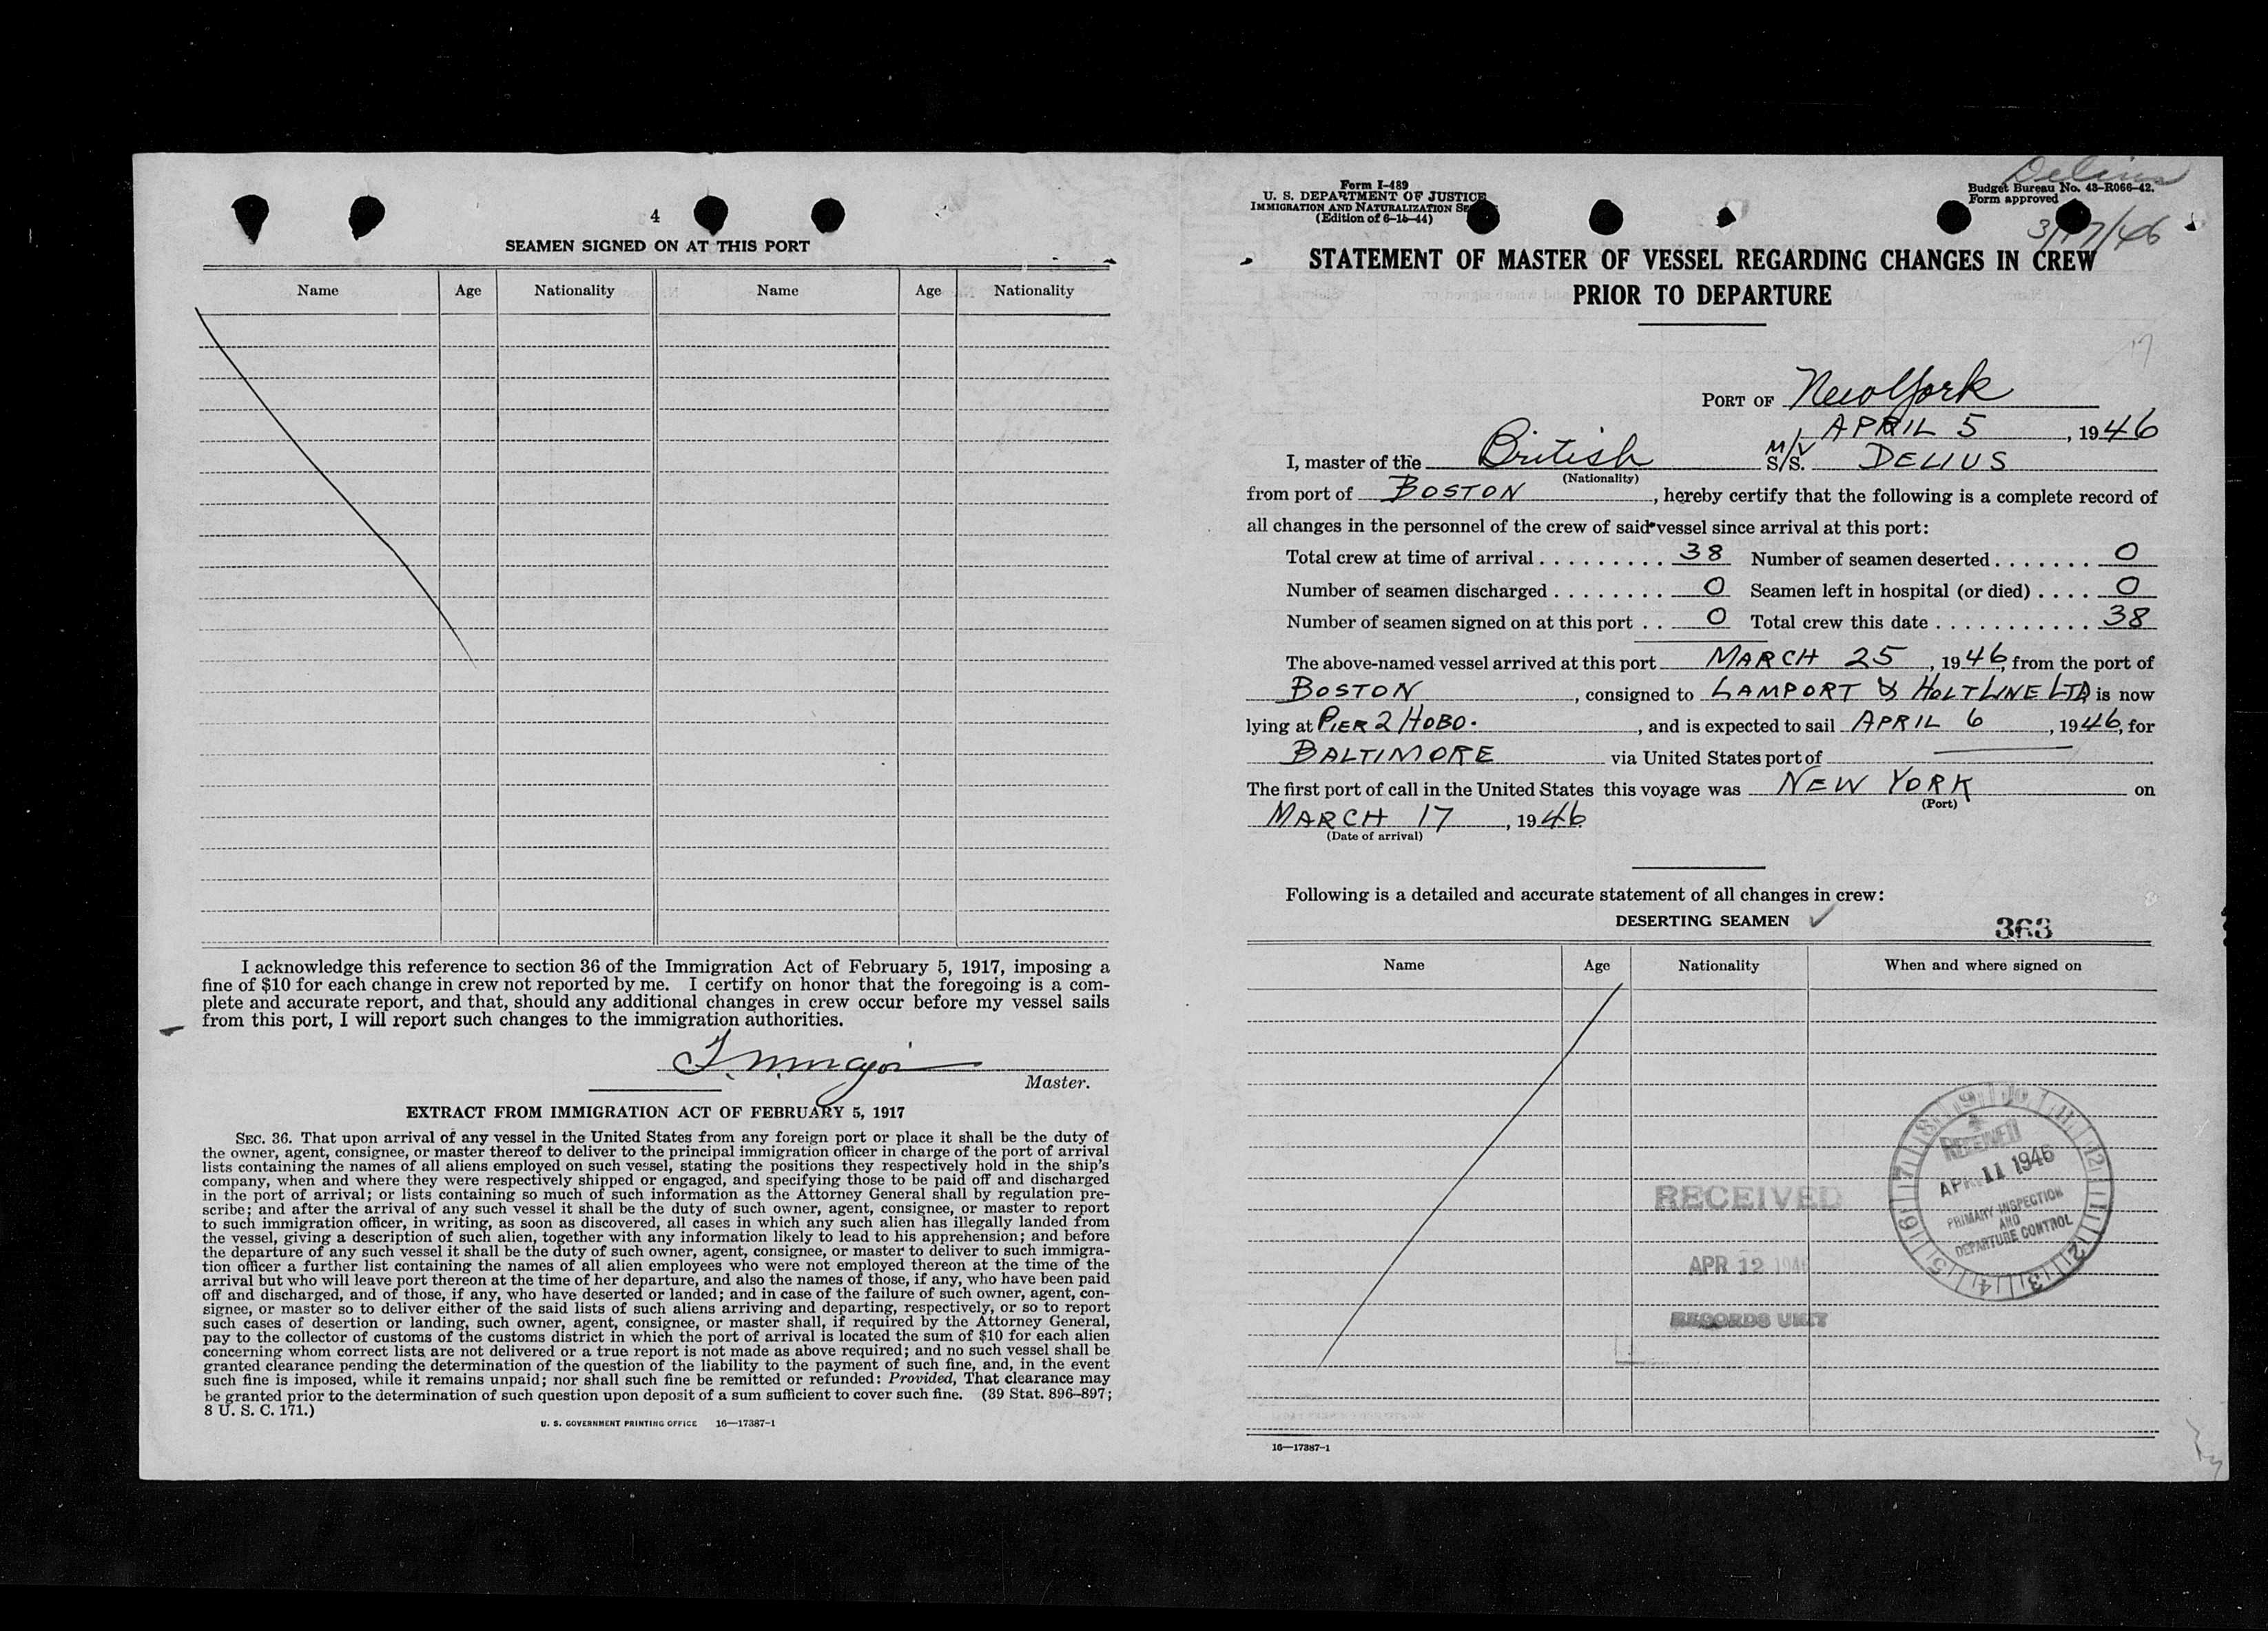 4
SEAMEN SIGNED ON AT THIS PORT
Name Age Nationality Name Age Nationality
I acknowledge this reference to section 36 of the Immigration Act of February 5, 1917, imposing a
fine of $10 for each change in crew not reported by me. I certify on honor that the foregoing is a com-
plete and accurate report, and that, should any additional changes in crew occur before my vessel sails
from this port, I will report such changes to the immigration authorities.
Master.
EXTRACT FROM IMMIGRATION ACT OF FEBRUARY 5, 1917
SEC. 36. That upon arrival of any vessel in the United States from any foreign port or place it shall be the duty of
the owner, agent, consignee, or master thereof to deliver to the principal immigration officer in charge of the port of arrival
lists containing the names of all aliens employed on such vessel, stating the positions they respectively hold in the ship's
company, when and where they were respectively shipped or engaged, and specifying those to be paid off and discharged
in the port of arrival; or lists containing so much of such information as the Attorney General shall by regulation pre-
scribe; and after the arrival of any such vessel it shall be the duty of such owner, agent, consignee, or master to report
to such immigration officer, in writing, as soon as discovered, all cases in which any such alien has illegally landed from
the vessel, giving a description of such alien, together with any information likely to lead to his apprehension; and before
the departure of any such vessel it shall be the duty of such owner, agent, consignee, or master to deliver to such immigra-
tion officer a further list containing the names of all alien employees who were not employed thereon at the time of the
arrival but who will leave port thereon at the time of her departure, and also the names of those, if any, who have been paid
off and discharged, and of those, if any, who have deserted or landed; and in case of the failure of such owner, agent, con-
signee, or master so to deliver either of the said lists of such aliens arriving and departing, respectively, or so to report
such cases of desertion or landing, such owner, agent, consignee, or master shall, if required by the Attorney General,
pay to the collector of customs of the customs district in which the port of arrival is located the sum of $10 for each alien
concerning whom correct lists are not delivered or a true report is not made as above required; and no such vessel shall be
granted clearance pending the determination of the question of the liability to the payment of such fine, and, in the event
such fine is imposed, while it remains unpaid; nor shall such fine be remitted or refunded: Provided, That clearance may
be granted prior to the determination of such question upon deposit of a sum sufficient to cover such fine. (39 Stat. 896–897;
8 U. S. C. 171.)
U. S. GOVERNMENT PRINTING OFFICE 16—17387-1
Delius
Form I-489
U. S. DEPARTMENT OF JUSTICE
IMMIGRATION AND NATURALIZATION
(Edition of 6-15-44)
Budget Bureau No. 43-R066-42.
Form approved
3/17/46
STATEMENT OF MASTER OF VESSEL REGARDING CHANGES IN CREW
PRIOR TO DEPARTURE
17
PORT OF New York
APRIL 5, 1946
I, master of the British M/V S/S. DELIUS
(Nationality)
from port of BOSTON, hereby certify that the following is a complete record of
all changes in the personnel of the crew of said vessel since arrival at this port:
Total crew at time of arrival . . . . . . . . . 38 Number of seamen deserted . . . . . . . 0
Number of seamen discharged . . . . . . . . 0 Seamen left in hospital (or died) . . . . 0
Number of seamen signed on at this port . . 0 Total crew this date . . . . . . . . . . . 38
The above-named vessel arrived at this port MARCH 25, 1946, from the port of
BOSTON, consigned to LAMPORT & HOLT LINE LTD, is now
lying at PIER 2 HOBO., and is expected to sail APRIL 6, 1946, for
BALTIMORE via United States port of
The first port of call in the United States this voyage was NEW YORK on
(Port)
MARCH 17, 1946
(Date of arrival)
Following is a detailed and accurate statement of all changes in crew:
DESERTING SEAMEN ✓
363
Name Age Nationality When and where signed on
RECEIVED
APR 11 1946
PRIMARY INSPECTION
AND
DEPARTURE CONTROL
RECEIVED
APR 12 1946
RECORDS UNIT
16—17387-1